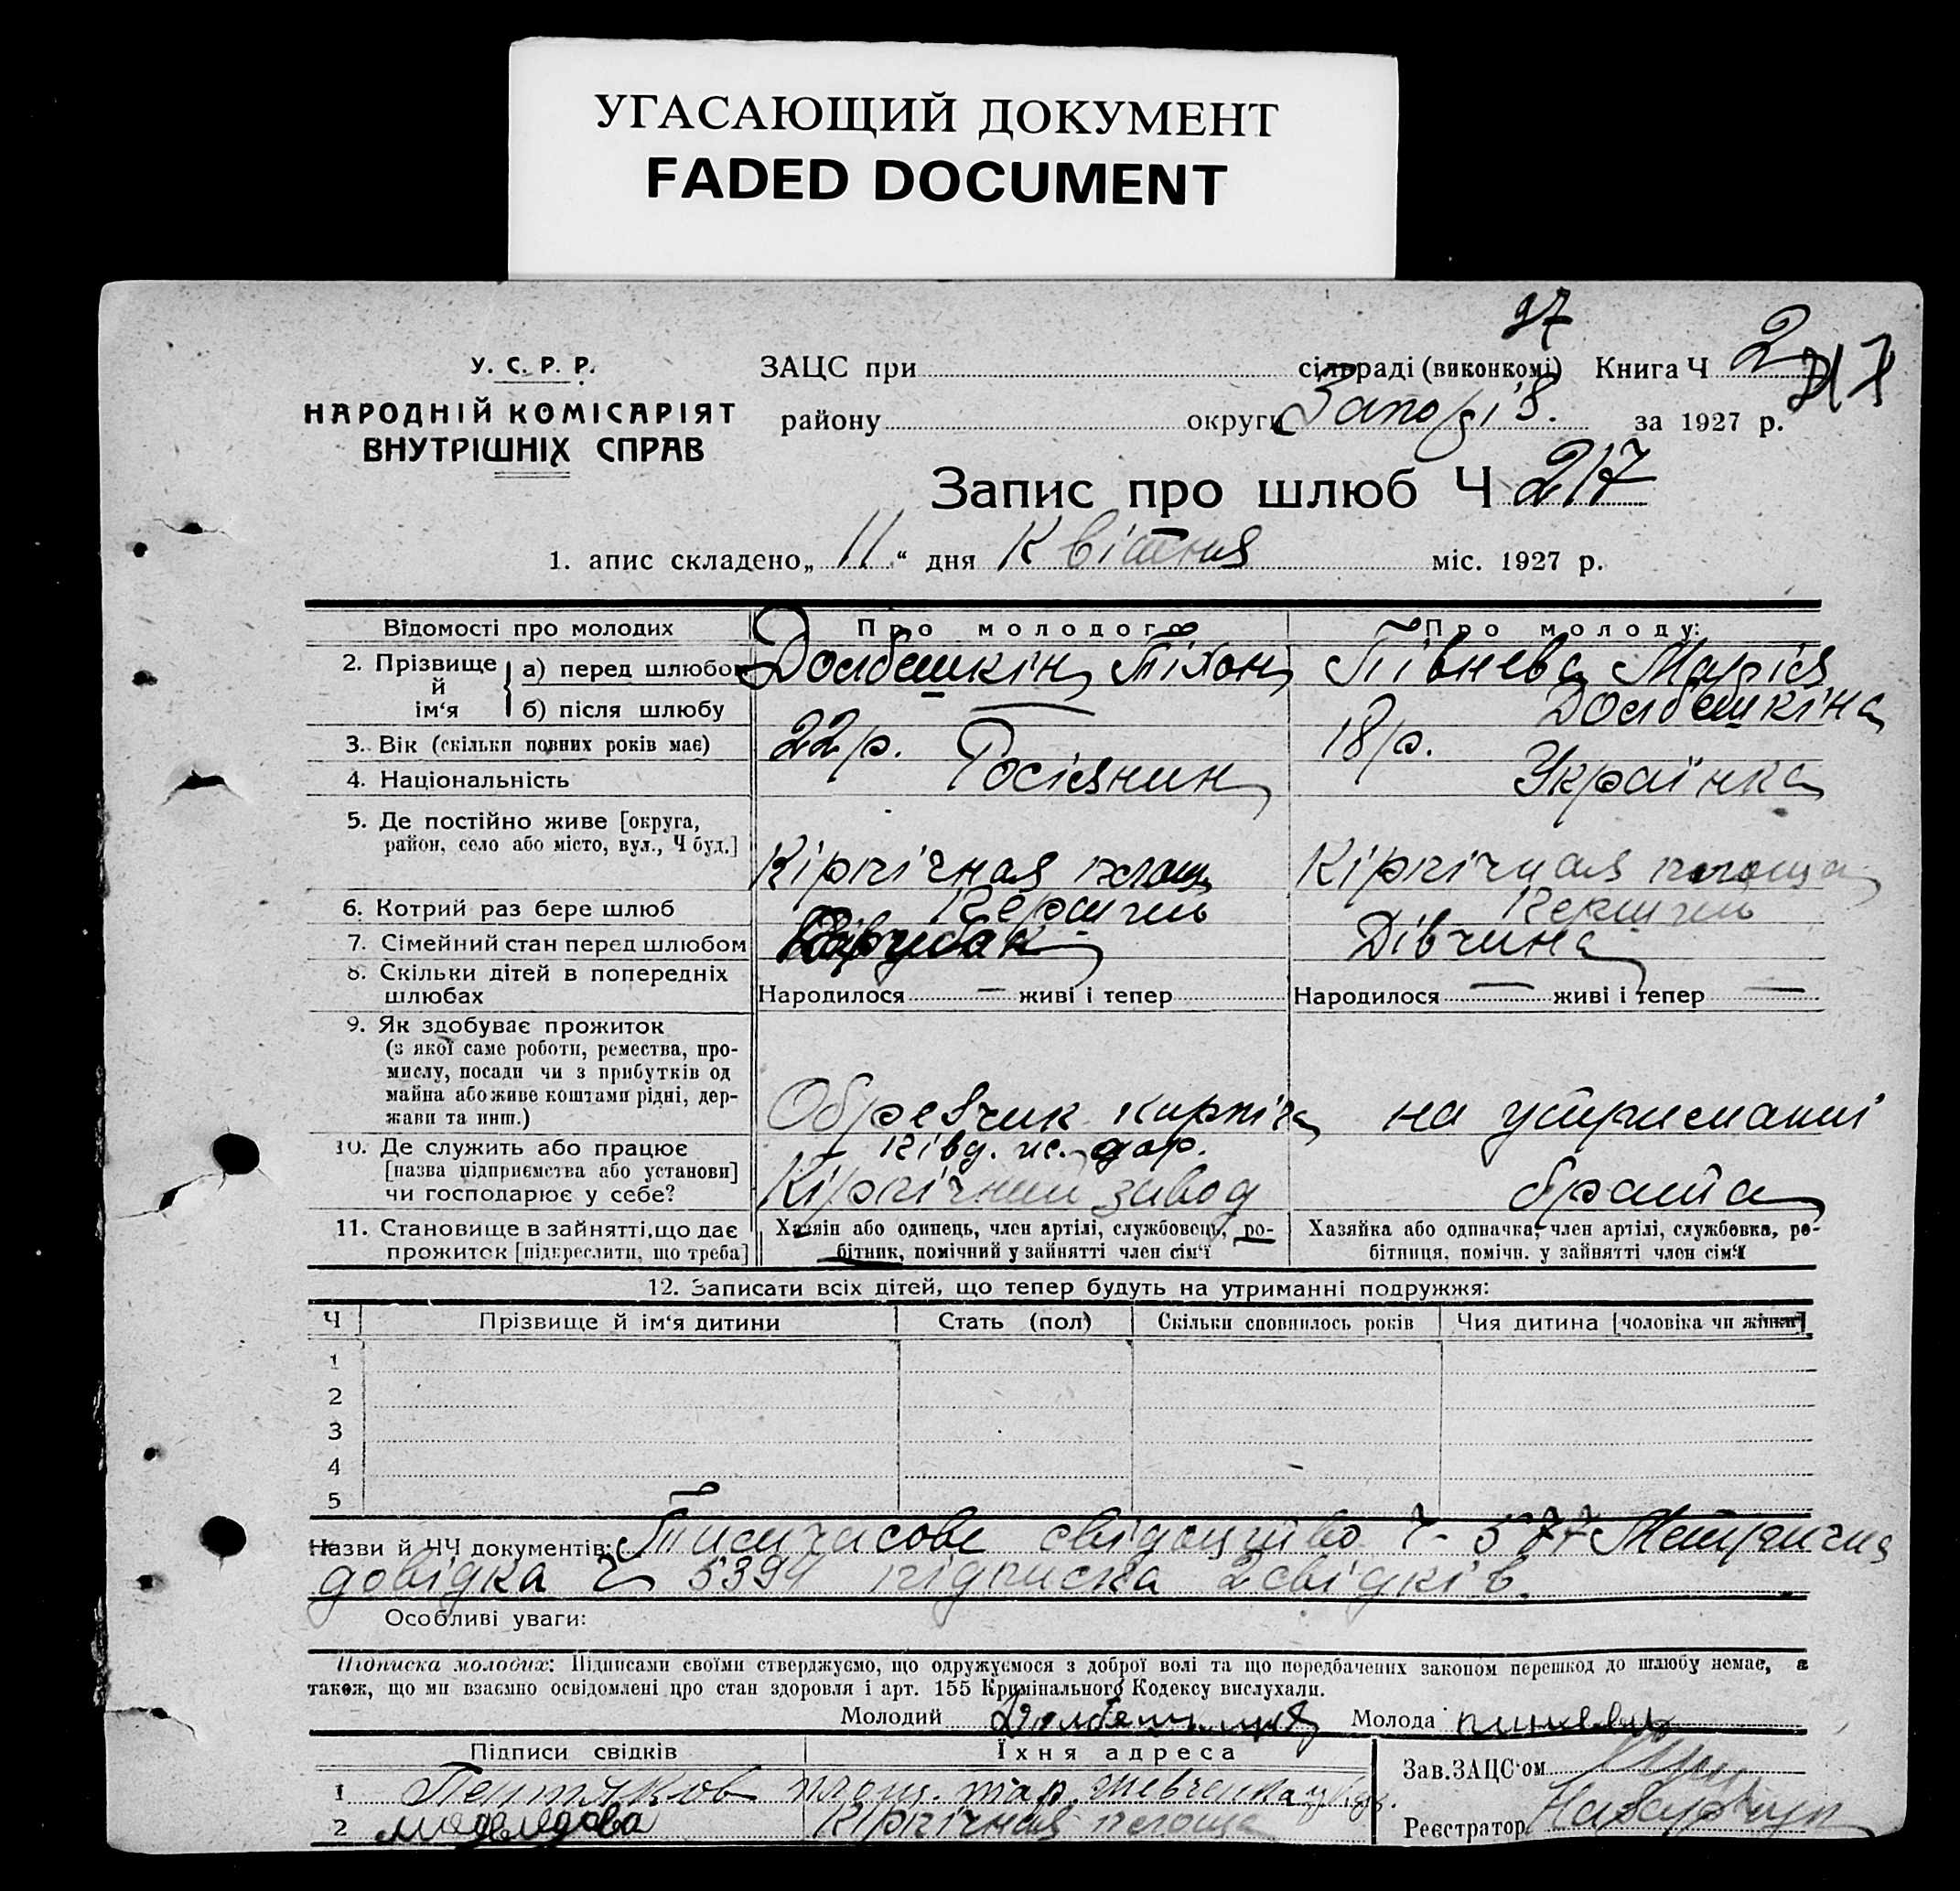 УГАСАЮЩИЙ ДОКУМЕНТ
FADED DOCUMENT
У. С. Р. Р.
НАРОДНІЙ КОМІСАРІЯТ
ВНУТРІШНІХ СПРАВ
97
ЗАЦС при сільраді (виконкомі) Книга Ч 2
217
району округи Запоріз. за 1927 р.
Запис про шлюб Ч 217
1. апис складено „ 11 “ дня Квітня міс. 1927 р.
Відомості про молодих Про молодого Про молоду:
2. Прізвище й ім‘я а) перед шлюбом Долбешкін Тіхон Півнева Марія
б) після шлюбу — Долбешкіна
3. Вік (скільки повних років має) 22 р. 18 р.
4. Національність Росіянин Українка
5. Де постійно живе [округа,
район, село або місто, вул., Ч буд.] Кірпічная площ Кірпічная площа
6. Котрий раз бере шлюб Перший Перший
7. Сімейний стан перед шлюбом Дівчина
8. Скільки дітей в попередніх
шлюбах Народилося — живі і тепер Народилося — живі і тепер —
9. Як здобуває прожиток
(з якої саме роботи, ремества, про-
мислу, посади чи з прибутків од
майна або живе коштами рідні, дер-
жави та инш.) Обрезчик кирпіча на утриманні
10. Де служить або працює Півд. зс. дор.
[назва підприємства або установи]
чи господарює у себе? Кірпічний завод брата
11. Становище в зайнятті, що дає Хазяін або одинець, член артілі, службовець, ро- Хазяйка або одиначка, член артілі, службовка, ро-
прожиток [підкреслити, що треба] бітник, помічний у зайнятті член сім‘ї бітниця, помічн. у зайнятті член сім‘ї
12. Записати всіх дітей, що тепер будуть на утриманні подружжя:
Ч Прізвище й ім‘я дитини Стать (пол) Скільки сповнилось років Чия дитина [чоловіка чи жінки]
1
2
3
4
5
Назви й ЧЧ документів: Тимчасове свідоцтво Ч 577 Метрична
довідка Ч 5394 підписка 2 свідків.
Особливі уваги:
Підписка молодих: Підписами своїми стверджуємо, що одружуємося з доброї волі та що передбачених законом перешкод до шлюбу немає, а
також, що ми взаємно освідомлені про стан здоровля і арт. 155 Кримінального Кодексу вислухали.
Молодий Молода
Підписи свідків Їхня адреса Зав. ЗАЦС‘ом
1 Пентяков площ. тар. Шевченка
2 Кірпічная площа Реєстратор